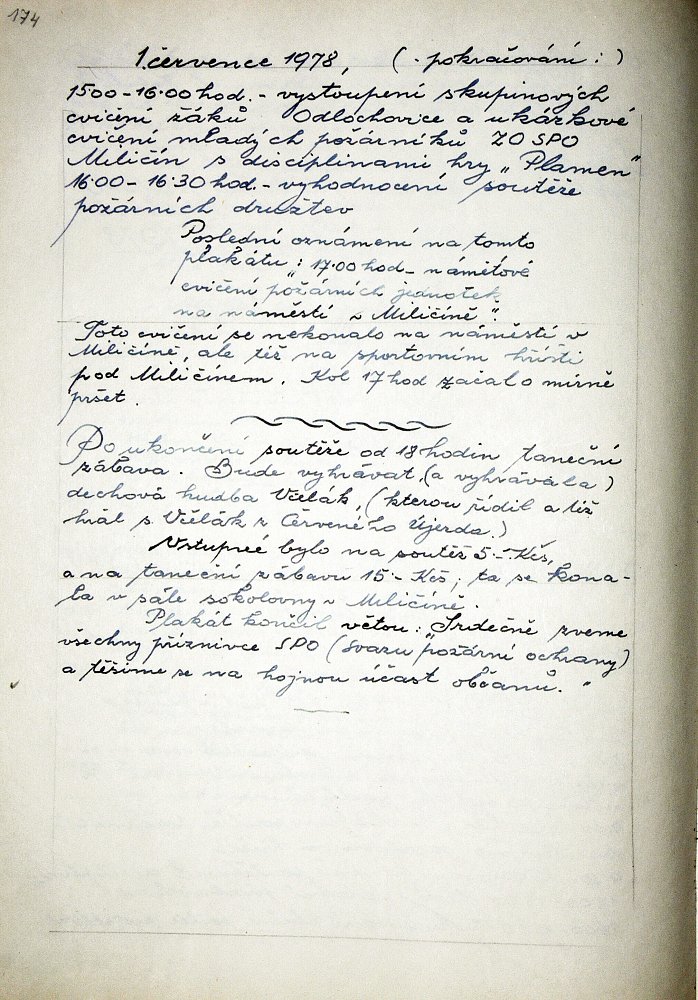 174
1. července 1978, (- pokračování:)
15·00-16·00 hod. - vystoupení skupinových
cvičení žáků Odlochovice a ukázkové
cvičení mladých požárníků ZO SPO
Miličín s disciplinami hry „Plamen"
16·00-16·30 hod. - vyhodnocení soutěže
požárních družtev
Poslední oznámení na tomto
plakátu: „17.00 hod - námětové
cvičení požárních jednotek
na náměstí v Miličíně".
Toto cvičení se nekonalo na náměstí v
Miličíně, ale též na sportovním hřišti
pod Miličínem. Kol 17 hod začalo mírně
pršet.
Po ukončení soutěže od 18 hodin taneční
zábava. Bude vyhrávat, (a vyhrávala)
dechová hudba Včelák, (kterou řídil a též
hrál s. Včelák z Červeného Újezda.)
Vstupné bylo na soutěž 5.- Kčs,
a na taneční zábavu 15.- Kčs; ta se kona-
la v sále sokolovny v Miličíně.
Plakát končil větou: „Srdečně zveme
všechny příznivce SPO (Svazu požární ochrany)
a těšíme se na hojnou účast občanů."